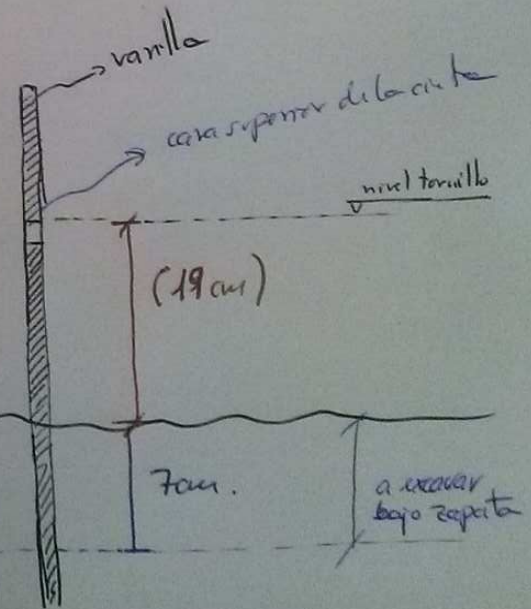 varilla
cara superior de la cinta
nivel tornillo
(19 cm)
7 cm.
a excavar
bajo zapata